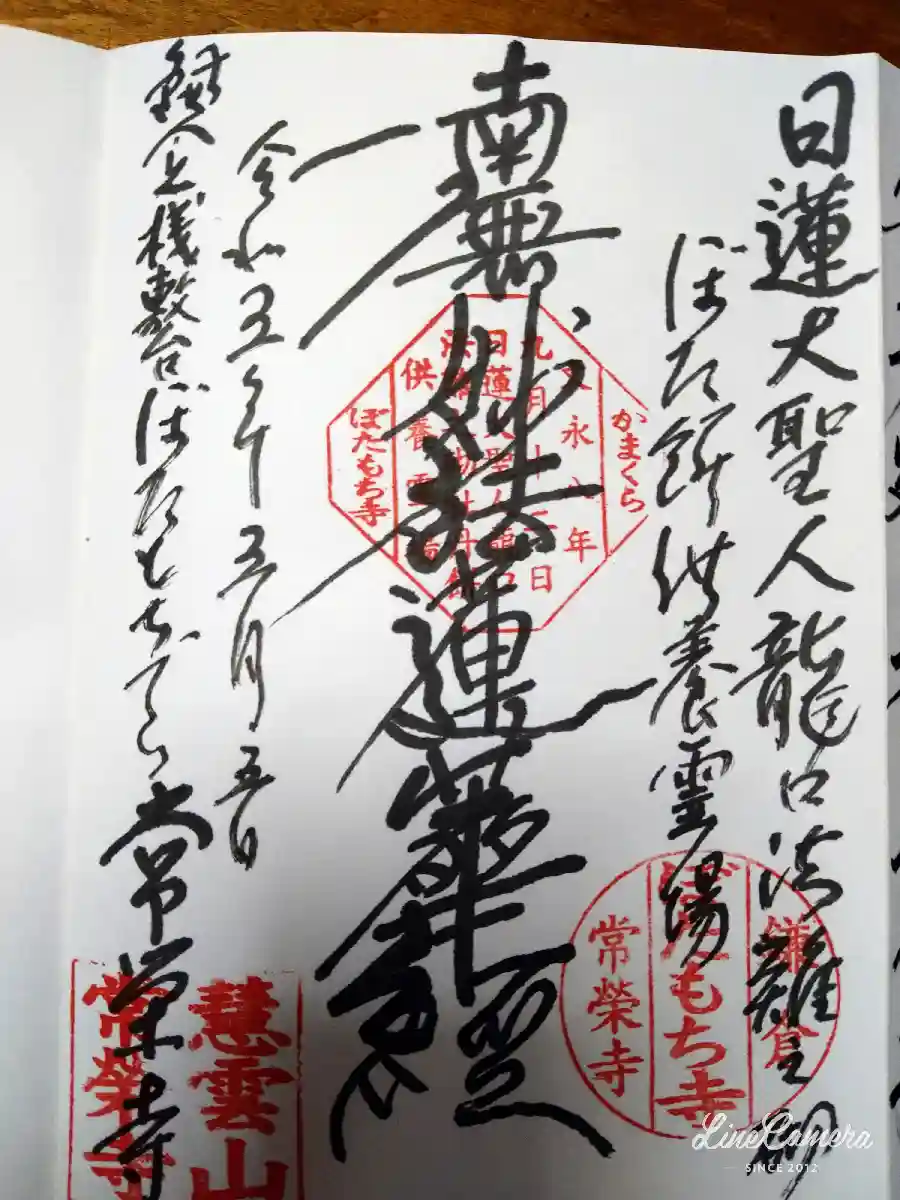 日蓮大聖人龍口法難之砌
ぼた餅供養霊場
南無妙法蓮華経
令和五年五月五日
鎌倉桟敷台ぼたもちでら常栄寺
かまくら
文永八年
九月十二日
供養霊場
ぼたもち寺
鎌倉
ぼたもち寺
常榮寺
慧雲山
常榮寺
LineCamera
SINCE 2012